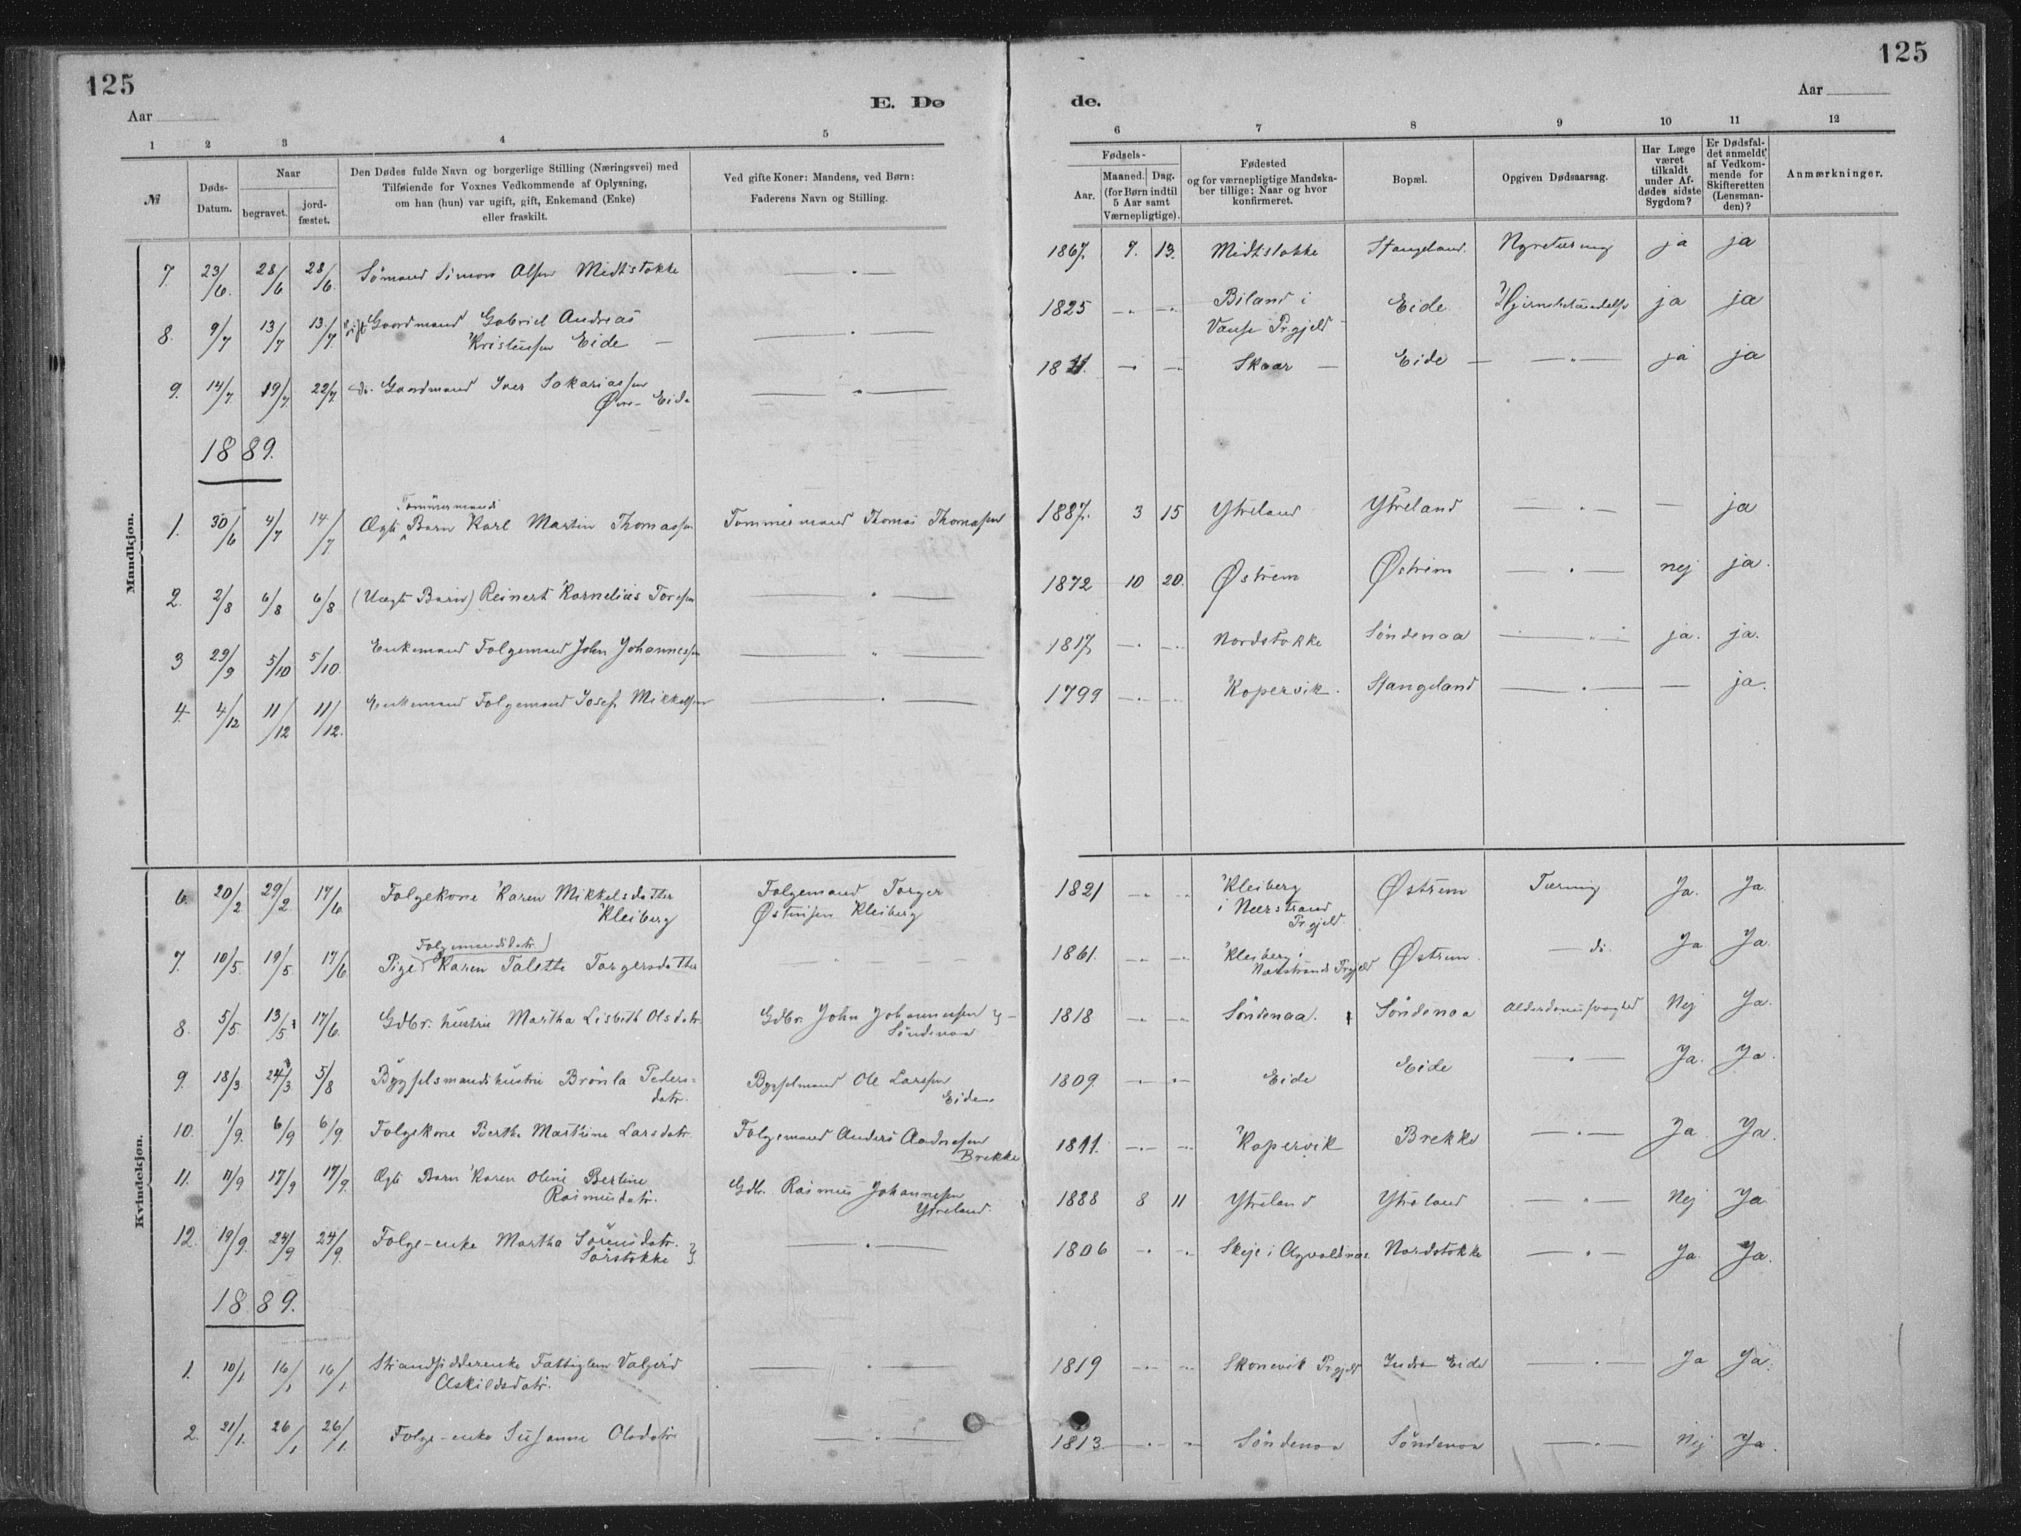 125
125
Aar
E. Dø
de.
Aar
1 2 3 4 5 6 7 8 9 10 11 12
№
Døds-Datum.
Naar
begravet.
jord-fæstet.
Den Dødes fulde Navn og borgerlige Stilling (Næringsvei) med
Tilføiende for Voxnes Vedkommende af Oplysning,
om han (hun) var ugift, gift, Enkemand (Enke)
eller fraskilt.
Ved gifte Koner: Mandens, ved Børn:
Faderens Navn og Stilling.
Fødsels-
Aar.
Maaned. Dag.
(for Børn indtil
5 Aar samt
Værnepligtige).
Fødested
og for værnepligtige Mandska-
ber tillige: Naar og hvor
konfirmeret.
Bopæl.
Opgiven Dødsaarsag.
Har Læge
været
tilkaldt
under Af-
dødes sidste
Sygdom?
Er Dødsfal-
det anmeldt
af Vedkom-
mende for
Skifteretten
(Lensman-
den)?
Anmærkninger.
Mandkjøn.
7. 23/6. 28/6 28/6. Sömand Simon Olsen Midtstokke — " — 1867. 9. 13. Midtstokke Stangeland. ja ja
8. 9/7 13/7 13/7. gift Gaardmand Gabriel Andreas
Kristensen Eide — — " — 1825 — " — — " — Biland i
Vanse Prgjeld Eide Hjernebetændelse ja ja
9. 14/7 19/7. 22/7. do. Gaardmand Iver Sakariassen
Øvre-Eide — " — 18 — " — — " — Skaar Eide — " — ja ja
1889.
1. 30/6 4/7 14/7 Ægte Tømmermands Barn Karl Martin Thomassen Tømmermand Thomas Thomassen 1887. 3 15 Ytreland Ytreland — " — — ja
2. 2/8 6/8 6/8 (Uægte Barn) Reinert Kornelius Toresen — " — 1872 10 20. Østrem Østrem — " — nej ja.
3 29/9 5/10 5/10. Enkemand Folgemand John Johannessen — " — 1817, — " — — " — Nordstokke Söndenaa — " — ja. ja.
4. 4/12 11/12 11/12. Enkemand Folgemand Josef Mikkelsen — " — 1799 — " — — " — Kopervik. Stangeland — " — — ja.
Kvindekjøn.
6. 20/2 29/2. 17/6. Folgekone Karen Mikkelsdatter
Kleiberg Folgemand Torger
Østensen Kleiberg 1821 — " — — " — Kleiberg
i Nærstrand
Prgjeld. Østrem Tæring Ja. Ja.
7. 10/5. 19/5. 17/6 Pige (Folgemandsdatr.) Karen Talette Torgersdatter — 1861. — " — — " — Kleiberg i
Nærstrands Prgjeld Østrem — do. Ja Ja.
8. 5/5. 13/5 17/6. Gdbr. hustru Martha Lisbeth Olsdatr. Gdbr. John Johannesen
Söndenaa 1818 — " — — " — Söndenaa. Söndenaa Alderdomssvaghed Nej Ja.
9. 18/3 24/3. 5/8 Bygselmandshustru Brönla Peders-
datr. Bygselmand Ole Larssen
Eide. 1809. — " — — " — Eide Eide — " — Ja. Ja.
10. 1/9. 6/9 6/9. Folgekone Berthe Marthine Larsdatr. Folgemand Anders Andreasen
Brekke 1811. — " — — " — Kopervik Brekke — " — Ja. Ja.
11. 11/9 17/9 17/9. Ægte Barn Karen Oline Bertine
Rasmusdatr. Gdbr. Rasmus Johannesen
Ytreland. 1888 8 11 Ytreland Ytreland — " — Nej Ja.
12. 19/9. 24/9 24/9. Folge-enke Martha Sörensdatr.
Sörstokke — " — 1806 — " — — " — Skeje i Agvaldsnes Nordstokke — " — Ja. Ja.
1889.
1. 10/1 16/1 16/1 Strandsidderenke Fattiglem Valgerd
Askildsdatr. — " — 1819 — " — — " — Skonevik Prgjeld Indre Eide — " — Ja Ja.
2. 21/1. 26/1 26/1 Folge-enke Susanne Olsdatr — " — 1813 — " — — " — Söndenaa Söndenaa — " — Nej Ja.